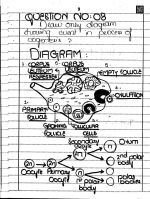 QUESTION NO: 08
Draw only diagram
showing event in process of
oogenesis?
DIAGRAM:
CORPUS
LUTEUM
REGRESSING
CORPUS
LUTEUM
EMPTY FOLLICLE
OVULATION
PRIMARY
FOLLICLE
GRAAFIAN
FOLLICLE
FOLLICULAR
CELLS
Secondary
Ovum
2n
2n
n
n
2nd polar
body
Oocyte
Primary
Oocyte
1st polar
body
Polar
bodies